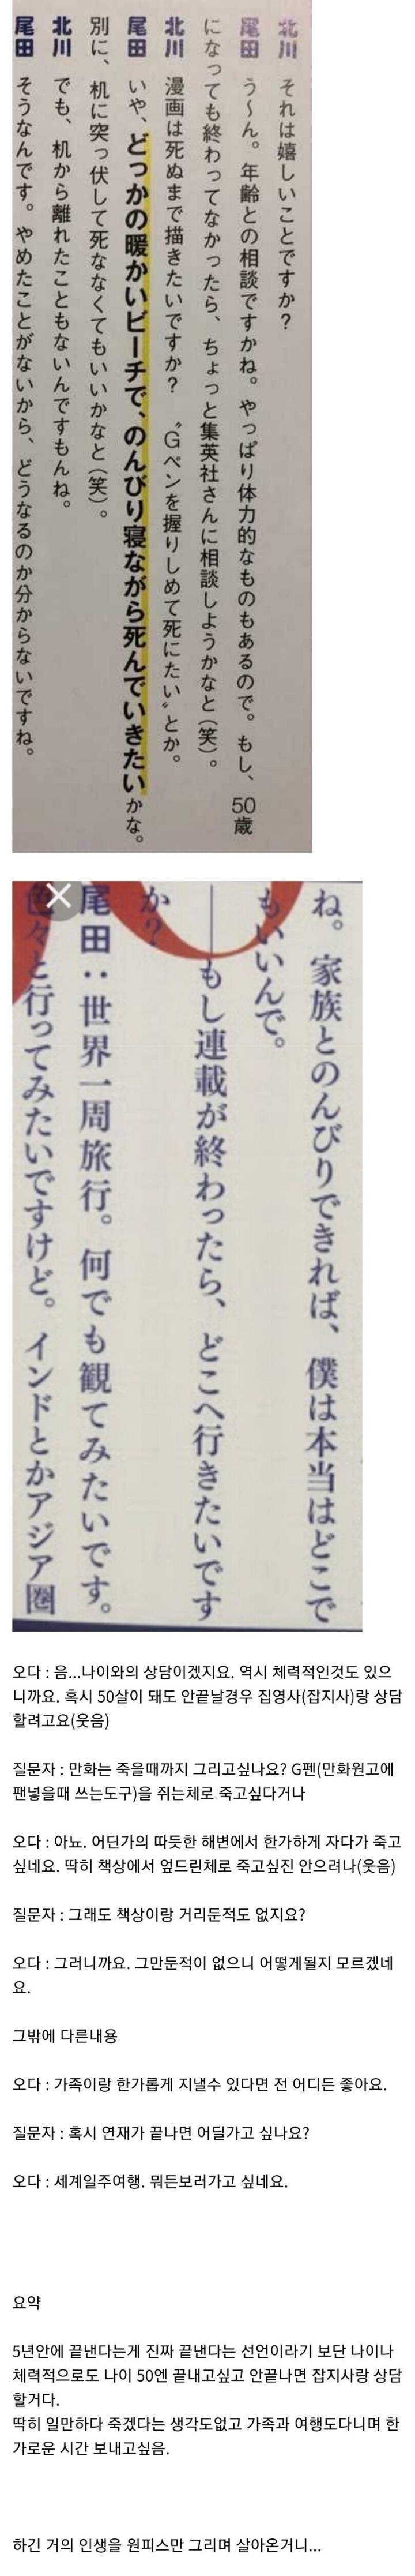 北川　それは嬉しいことですか？
尾田　う〜ん。年齢との相談ですかね。やっぱり体力的なものもあるので。もし、50歳
になっても終わってなかったら、ちょっと集英社さんに相談しようかなと（笑）。
北川　漫画は死ぬまで描きたいですか？　〝Gペンを握りしめて死にたい〟とか。
尾田　いや、どっかの暖かいビーチで、のんびり寝ながら死んでいきたいかな。
別に、机に突っ伏して死ななくてもいいかなと（笑）。
北川　でも、机から離れたこともないんですもんね。
尾田　そうなんです。やめたことがないから、どうなるのか分からないですね。
ね。家族とのんびりできれば、僕は本当はどこで
もいいんで。
――もし連載が終わったら、どこへ行きたいです
か？
尾田：世界一周旅行。何でも観てみたいです。
色々と行ってみたいですけど。インドとかアジア圏
오다 : 음...나이와의 상담이겠지요. 역시 체력적인것도 있으
니까요. 혹시 50살이 돼도 안끝날경우 집영사(잡지사)랑 상담
할려고요(웃음)
질문자 : 만화는 죽을때까지 그리고싶나요? G펜(만화원고에
팬넣을때 쓰는도구)을 쥐는체로 죽고싶다거나
오다 : 아뇨. 어딘가의 따듯한 해변에서 한가하게 자다가 죽고
싶네요. 딱히 책상에서 엎드린체로 죽고싶진 안으려나(웃음)
질문자 : 그래도 책상이랑 거리둔적도 없지요?
오다 : 그러니까요. 그만둔적이 없으니 어떻게될지 모르겠네
요.
그밖에 다른내용
오다 : 가족이랑 한가롭게 지낼수 있다면 전 어디든 좋아요.
질문자 : 혹시 연재가 끝나면 어딜가고 싶나요?
오다 : 세계일주여행. 뭐든보러가고 싶네요.
요약
5년안에 끝낸다는게 진짜 끝낸다는 선언이라기 보단 나이나
체력적으로도 나이 50엔 끝내고싶고 안끝나면 잡지사랑 상담
할거다.
딱히 일만하다 죽겠다는 생각도없고 가족과 여행도다니며 한
가로운 시간 보내고싶음.
하긴 거의 인생을 원피스만 그리며 살아온거니...